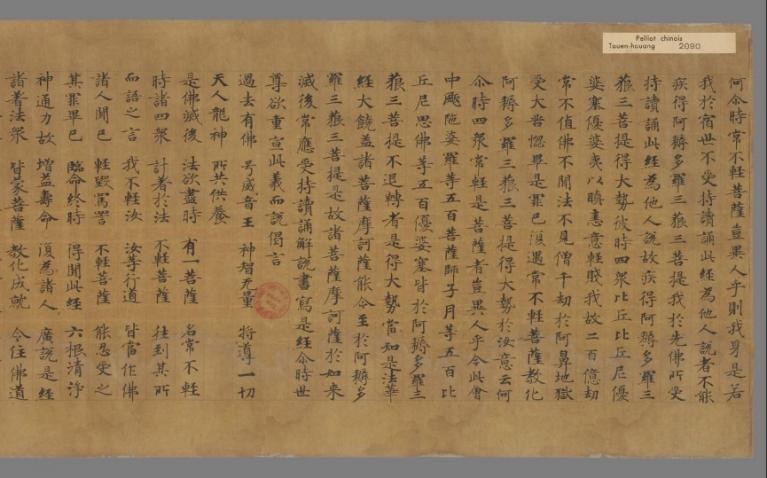 Pelliot chinois
Touen-houang 2090
何尒時常不輕菩薩豈異人乎則我身是若
我於宿世不受持讀誦此經為他人說者不能
疾得阿耨多羅三藐三菩提我於先佛所受
持讀誦此經為他人說故疾得阿耨多羅三
藐三菩提得大勢彼時四衆比丘比丘尼優
婆塞優婆夷以瞋恚意輕賤我故二百億劫
常不值佛不聞法不見僧千劫於阿鼻地獄
受大苦惱畢是罪已復遇常不輕菩薩教化
阿耨多羅三藐三菩提得大勢於汝意云何
尒時四衆常輕是菩薩者豈異人乎今此會
中颰陁婆羅等五百菩薩師子月等五百比
丘尼思佛等五百優婆塞皆於阿耨多羅三
藐三菩提不退轉者是得大勢當知是法華
經大饒益諸菩薩摩訶薩能令至於阿耨多
羅三藐三菩提是故諸菩薩摩訶薩於如来
滅後常應受持讀誦解說書寫是經尒時世
尊欲重宣此義而說偈言
過去有佛 号威音王 神智无量 將導一切
天人龍神 所共供養
是佛滅後 法欲盡時 有一菩薩 名常不輕
時諸四衆 計著於法 不輕菩薩 往到其所
而語之言 我不輕汝 汝等行道 皆當作佛
諸人聞已 輕毀罵詈 不輕菩薩 能忍受之
其罪畢已 臨命終時 得聞此經 六根清淨
神通力故 增益壽命 復為諸人 廣說是經
諸著法衆 皆蒙菩薩 教化成就 令住佛道